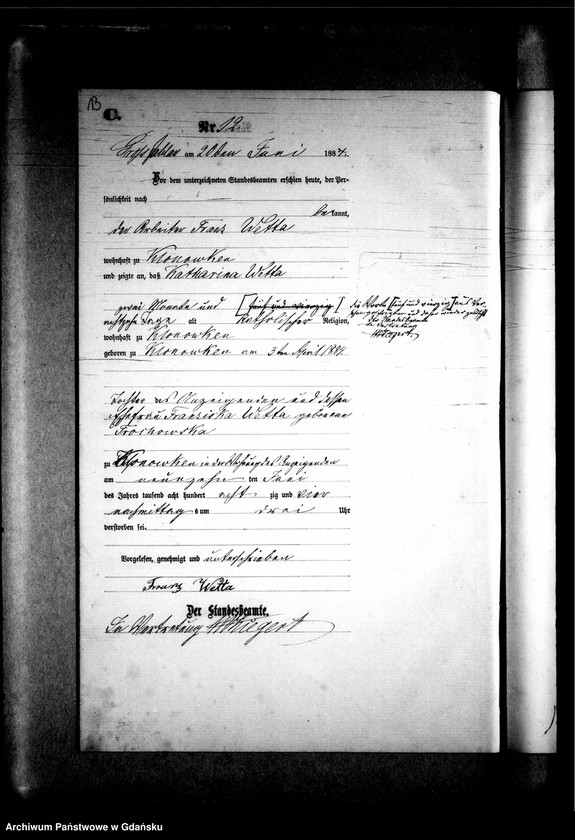 B
C.
Nr. 12.
am 20ten Juni 1884.
Vor dem unterzeichneten Standesbeamten erschien heute, der Per-
sönlichkeit nach
bekannt,
der Arbeiter Franz Wetta
wohnhaft zu Klonowken
und zeigte an, daß Katharina Wetta
zwei Monate und [fünf und vierzig]
Tage alt katholischer Religion,
wohnhaft zu Klonowken
geboren zu Klonowken am 3ten April 1884
Tochter des Anzeigenden und dessen
Ehefrau Franziska Wetta geborene
zu Klonowken in der Wohnung des Anzeigenden
am neunzehn ten Juni
des Jahres tausend acht hundert acht zig und vier
nachmittags um drei Uhr
verstorben sei.
Vorgelesen, genehmigt und unterschrieben
Franz Wetta
Der Standesbeamte.
In Vertretung
die Worte fünf und vierzig
Der Standesbeamte
In Vertretung
Archiwum Państwowe w Gdańsku